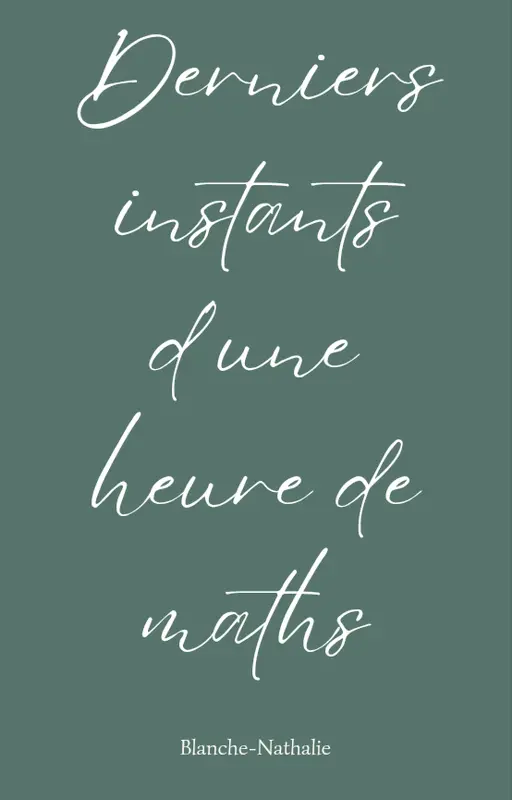 Derniers
instants
d une
heure de
maths
Blanche-Nathalie